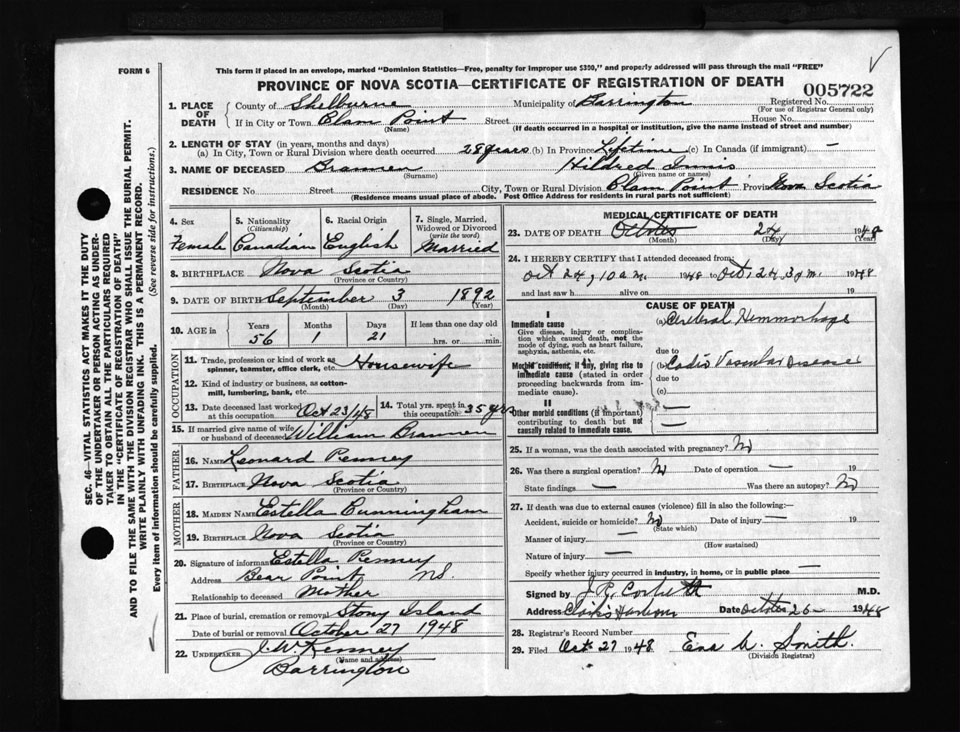 FORM 6
This form if placed in an envelope, marked "Dominion Statistics—Free, penalty for improper use $300," and properly addressed will pass through the mail "FREE"
PROVINCE OF NOVA SCOTIA—CERTIFICATE OF REGISTRATION OF DEATH
005722
1. PLACE OF DEATH County of Shelburne Municipality of Barrington Registered No.
(For use of Registrar General only)
If in City or Town Clam Point Street House No.
(Name) (If death occurred in a hospital or institution, give the name instead of street and number)
2. LENGTH OF STAY (in years, months and days)
(a) In City, Town or Rural Division where death occurred 28 years (b) In Province Lifetime (c) In Canada (if immigrant) —
3. NAME OF DECEASED Brannen Hildred Innis
(Surname) (Given name or names)
RESIDENCE No. Street City, Town or Rural Division Clam Point Province Nova Scotia
(Residence means usual place of abode. Post Office Address for residents in rural parts not sufficient)
4. Sex 5. Nationality (Citizenship) 6. Racial Origin 7. Single, Married, Widowed or Divorced (write the word)
Female Canadian English Married
8. BIRTHPLACE Nova Scotia
(Province or Country)
9. DATE OF BIRTH September 3 1892
(Month) (Day) (Year)
10. AGE in Years Months Days If less than one day old
56 1 21 hrs. or min.
OCCUPATION
11. Trade, profession or kind of work as spinner, teamster, office clerk, etc. Housewife
12. Kind of industry or business, as cotton-mill, lumbering, bank, etc.
13. Date deceased last worked at this occupation Oct 23/48 14. Total yrs. spent in this occupation 35 yrs
15. If married give name of wife or husband of deceased William Brannen
FATHER
16. NAME Leonard Penney
17. BIRTHPLACE Nova Scotia
(Province or Country)
MOTHER
18. MAIDEN NAME Estella Cunningham
19. BIRTHPLACE Nova Scotia
(Province or Country)
20. Signature of informant Estella Penney
Address Bear Point N.S.
Relationship to deceased Mother
21. Place of burial, cremation or removal Stony Island
Date of burial or removal October 27 1948
22. UNDERTAKER J. W. Kenney
(Name and address)
Barrington
MEDICAL CERTIFICATE OF DEATH
23. DATE OF DEATH October 24, 1948
(Month) (Day) (Year)
24. I HEREBY CERTIFY that I attended deceased from:
Oct 24, 10 a.m. 1948 to Oct. 24, 3 p.m. 1948
and last saw h alive on 19
CAUSE OF DEATH
I
Immediate cause (a) Cerebral Hemmorhage
Give disease, injury or complication which caused death, not the mode of dying, such as heart failure, asphyxia, asthenia, etc.
due to
Morbid conditions, if any, giving rise to immediate cause (stated in order proceeding backwards from immediate cause). (b) Cadio Vascular Disease
due to
(c)
II
Other morbid conditions (if important) contributing to death but not causally related to immediate cause.
25. If a woman, was the death associated with pregnancy? No
26. Was there a surgical operation? No Date of operation — 19
State findings — Was there an autopsy? No
27. If death was due to external causes (violence) fill in also the following:
Accident, suicide or homicide? No Date of injury — 19
(State which)
Manner of injury —
(How sustained)
Nature of injury —
Specify whether injury occurred in industry, in home, or in public place —
Signed by J. R. Corbett M.D.
Address Clark's Harbour Date October 26 1948
28. Registrar's Record Number
29. Filed Oct. 27 1948 Ena M. Smith.
(Division Registrar)
SEC. 46—VITAL STATISTICS ACT MAKES IT THE DUTY
OF THE UNDERTAKER OR PERSON ACTING AS UNDER-
TAKER TO OBTAIN ALL THE PARTICULARS REQUIRED
IN THE "CERTIFICATE OF REGISTRATION OF DEATH"
AND TO FILE THE SAME WITH THE DIVISION REGISTRAR WHO SHALL ISSUE THE BURIAL PERMIT.
WRITE PLAINLY WITH UNFADING INK. THIS IS A PERMANENT RECORD.
Every item of information should be carefully supplied. (See reverse side for instructions.)